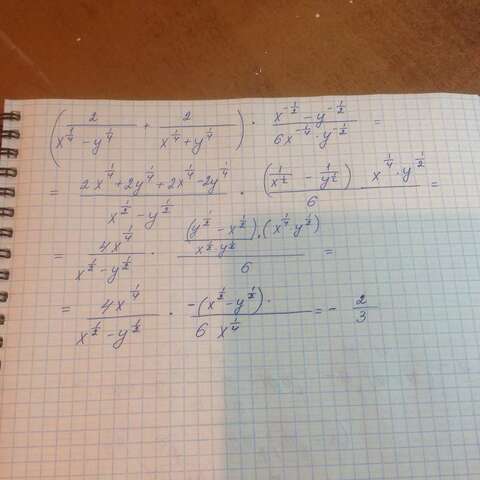 ( 2/(x^{1/4} - y^{1/4}) + 2/(x^{1/4} + y^{1/4}) ) · (x^{-1/2} - y^{-1/2})/(6x^{-1/4} · y^{-1/2}) =
= (2x^{1/4} + 2y^{1/4} + 2x^{1/4} - 2y^{1/4})/(x^{1/2} - y^{1/2}) · ((1/x^{1/2} - 1/y^{1/2}) · x^{1/4} · y^{1/2})/6 =
= 4x^{1/4}/(x^{1/2} - y^{1/2}) · ((y^{1/2} - x^{1/2})/(x^{1/2} · y^{1/2}) · (x^{1/4} · y^{1/2}))/6 =
= 4x^{1/4}/(x^{1/2} - y^{1/2}) · (-(x^{1/2} - y^{1/2}) ·)/(6 x^{1/4}) = - 2/3